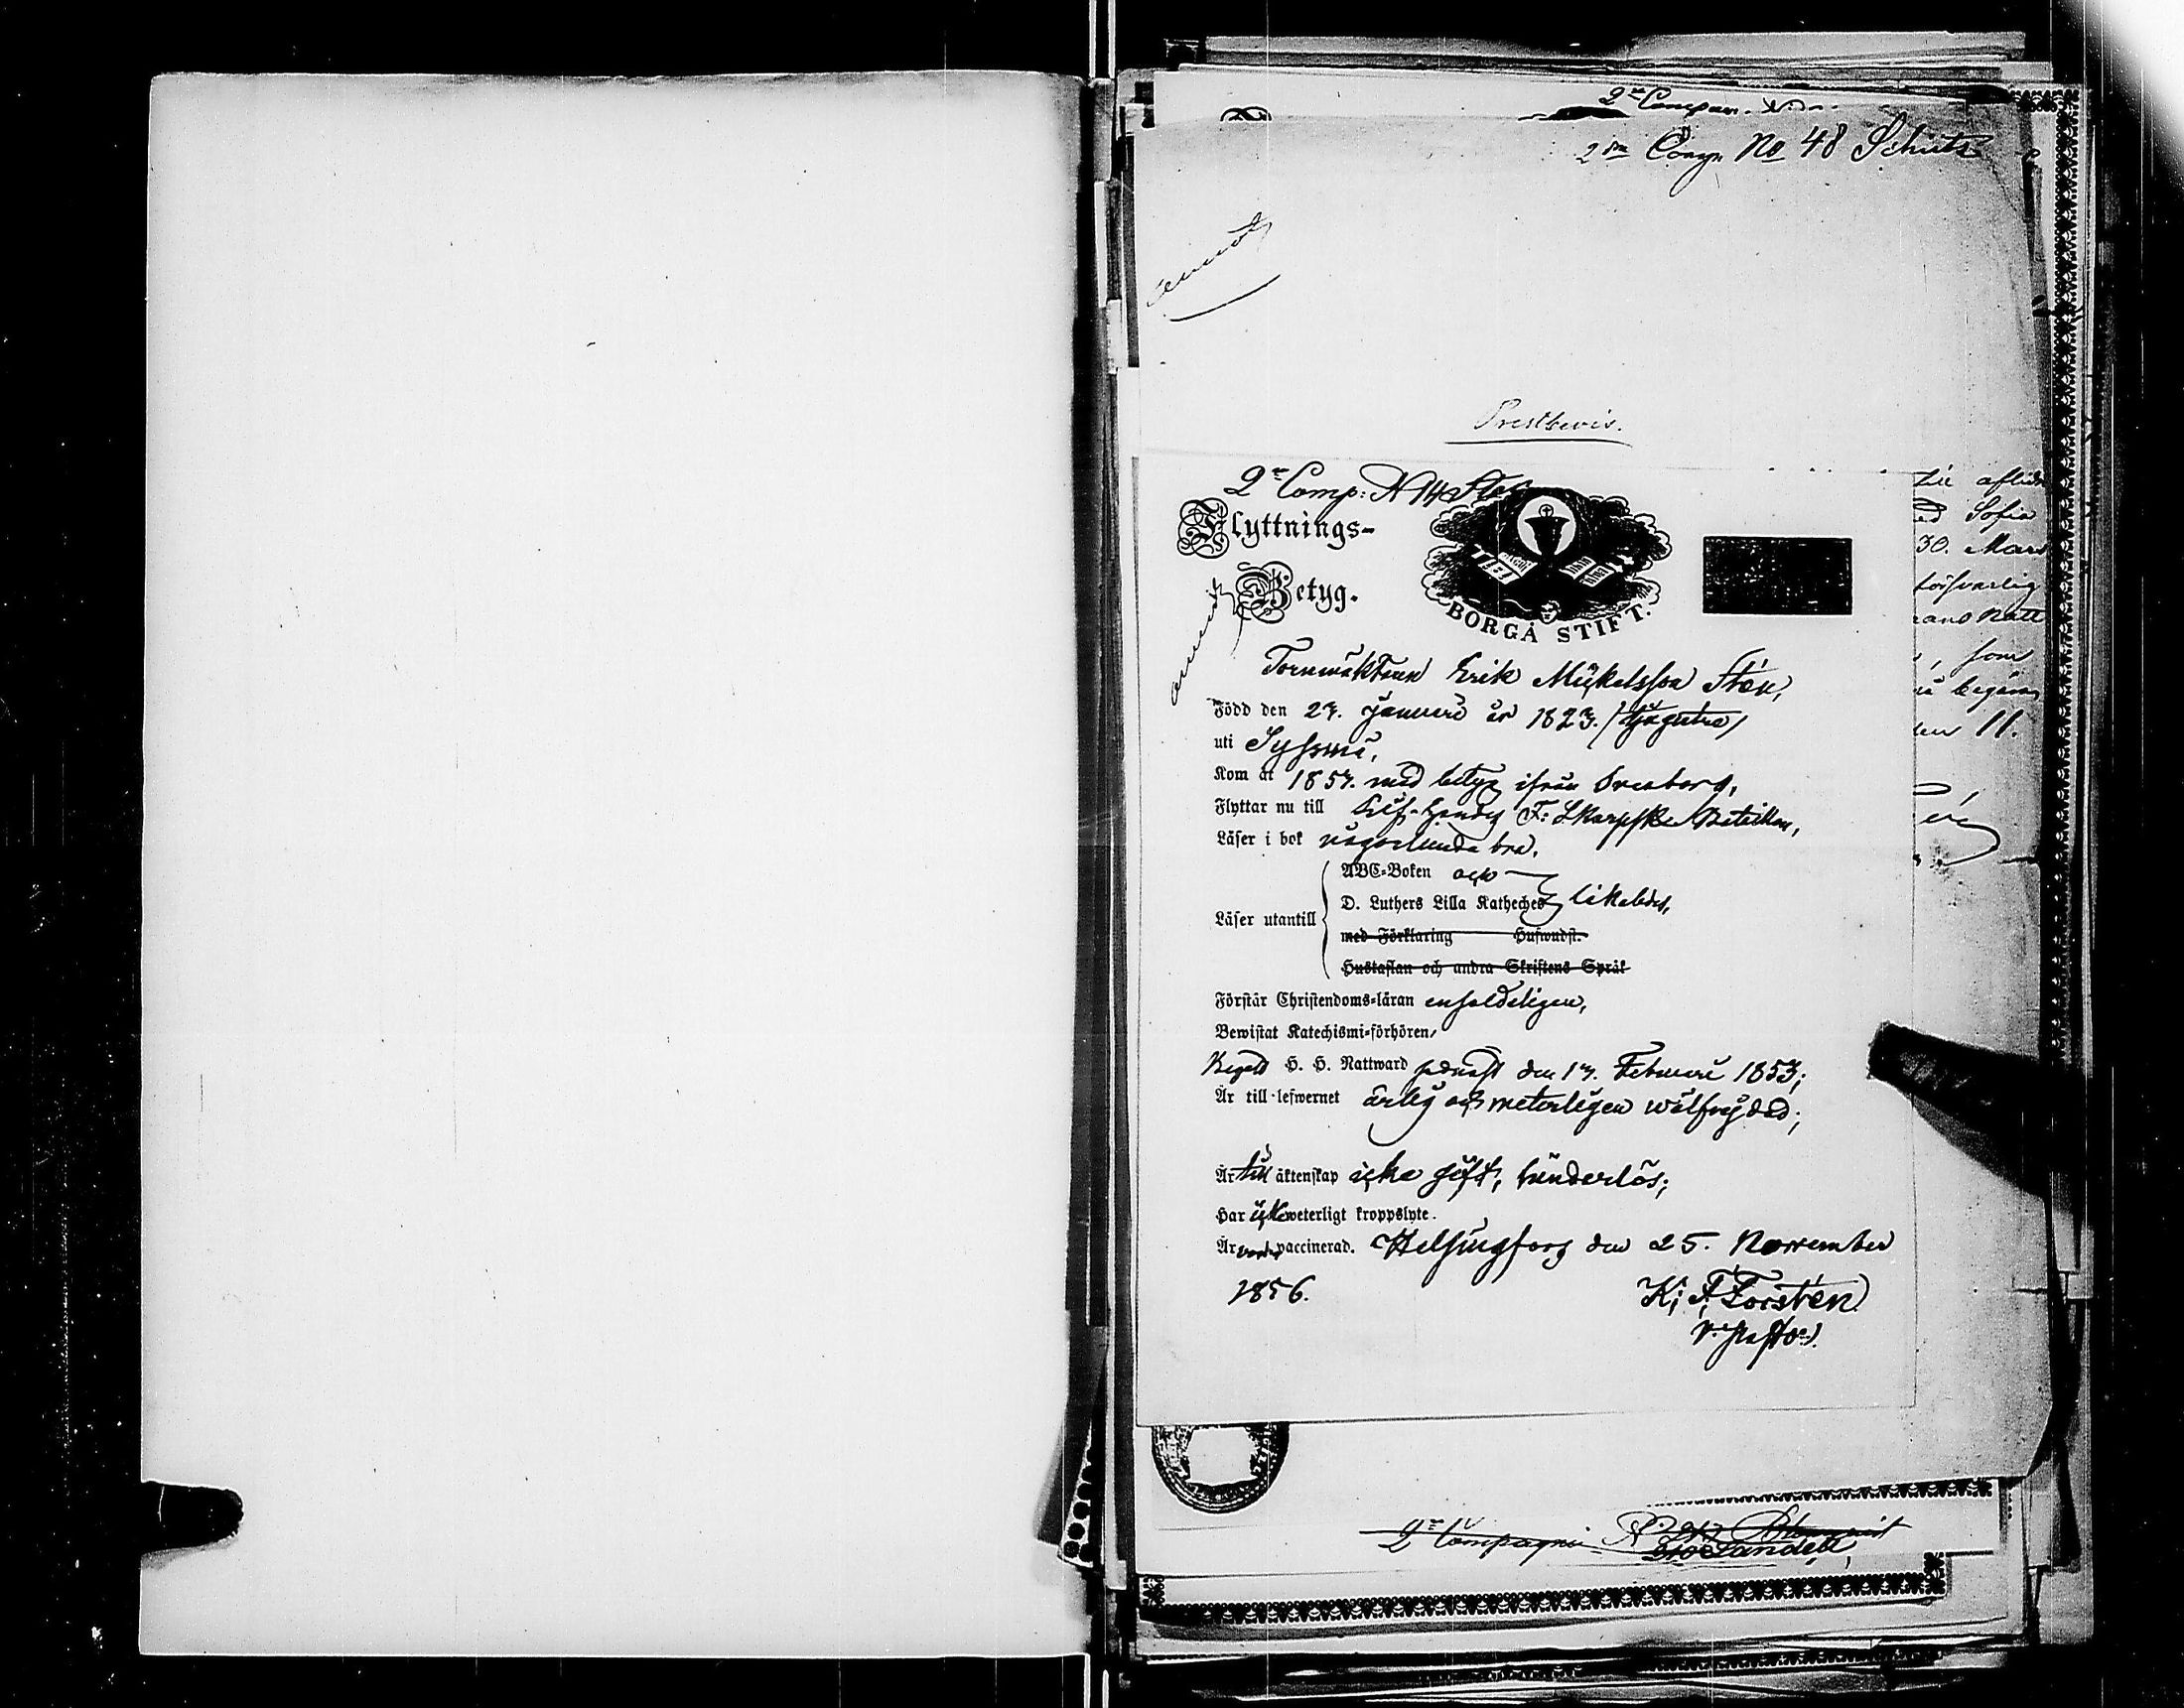 2dra Comp No 48 Schüts
Prestbevis.
2e Comp: N 14 Sten
Flyttnings-
Betyg.
BORGÅ STIFT.
Tornväktaren Erik Mickelsson Stén,
Född den 27. Januari år 1823.
uti Syssmä,
Kom år 1851. med betyg ifrån
Flyttar nu till Lif-Gardes F: Skarpsk: Bataillon,
Läser i bok någorlunda bra.
ABC-Boken och
Läser utantill D. Luthers Lilla Kateches likaledes,
med Förklaring Huswudst.
Hustaflan och andra Skriftens Språk
Förstår Christendoms-läran enfaldeligen,
Bewistat Katechismi-förhören,
Begått H. H. Nattward sednast den 17. Februari 1853;
Är till lefwernet ärlig och weterligen wälfrejdad;
Är till äktenskap icke gift, hinderlös;
Har icke weterligt kroppslyte.
Är vaccinerad. Helsingfors den 25. November
1856.
K: F: Forstén
V. Pastor.
till aflidne
med Sofia
30. Mars
försvarlig
rans Natt
, som
på begäran
den 11.
2e Compagni
210 Sandell